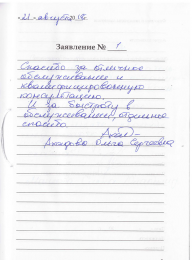 «21» августа
Заявление № 1
Спасибо за отличное
обслуживание и
квалифицированную
консультацию.
И за быстроту в
обслуживании, отдельное
спасибо
Ольга Сергеевна